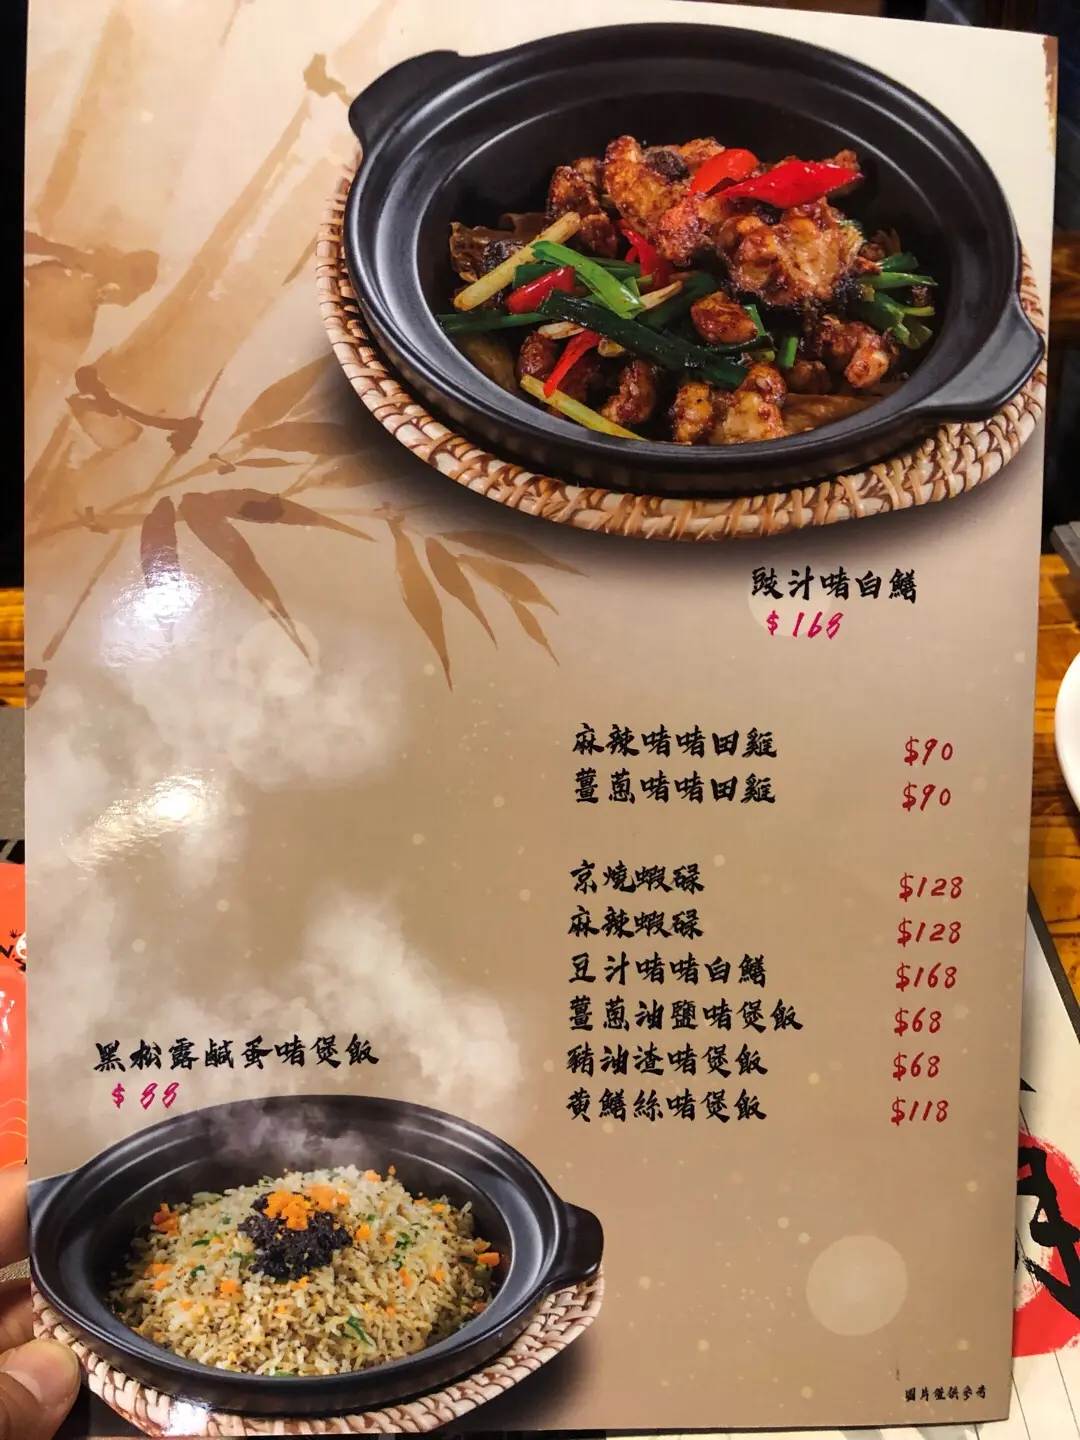 豉汁啫白鱔
$168
麻辣啫啫田雞 $90
薑蔥啫啫田雞 $90
京燒蝦碌 $128
麻辣蝦碌 $128
豆汁啫啫白鱔 $168
薑蔥油鹽啫煲飯 $68
豬油渣啫煲飯 $68
黃鱔絲啫煲飯 $118
黑松露鹹蛋啫煲飯
$88
圖片僅供參考